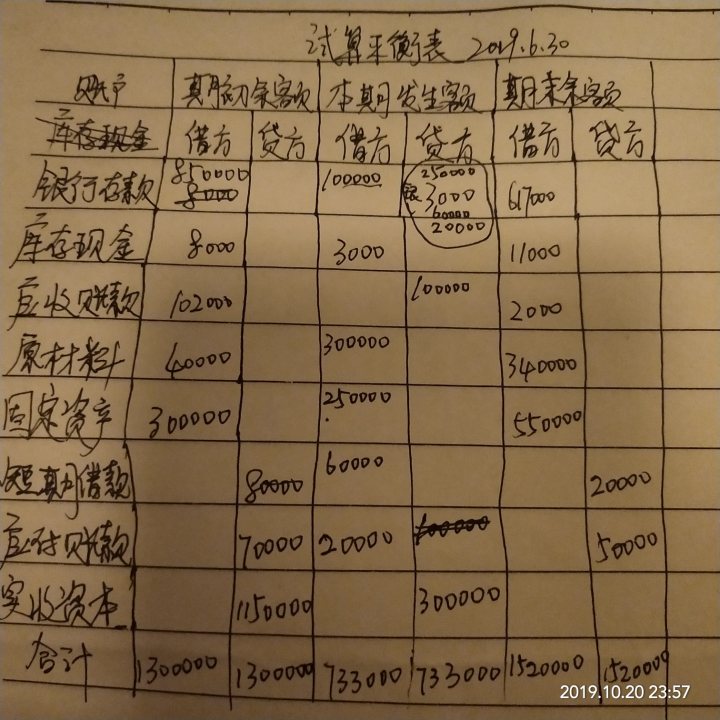 试算平衡表 2019.6.30
账户 期初余额 本期发生额 期末余额
库存现金 借方 贷方 借方 贷方 借方 贷方
银行存款 850000 8000 100000 250000 3000 60000 20000 617000
库存现金 8000 3000 11000
应收账款 102000 100000 2000
原材料 40000 300000 340000
固定资产 300000 250000 550000
短期借款 80000 60000 20000
应付账款 70000 20000 100000 50000
实收资本 1150000 300000
合计 1300000 1300000 733000 733000 1520000 1520000
2019.10.20 23:57